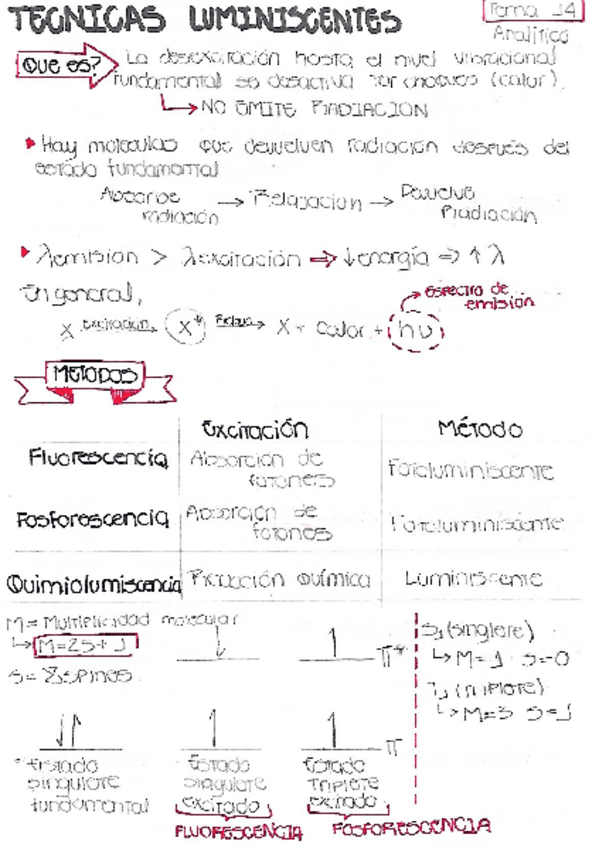 TECNICAS LUMINISCENTES
Tema 14
Analítica
Que es?
La desexcitación hasta el nivel vibracional
fundamental se desactiva por choques (calor).
↳ NO EMITE RADIACION
Hay moleculas que devuelven radiación después del
estado fundamental
Absorbe radiación → Relajacion → Devuelve Radiación
λemision > λexcitación ⇒ ↓energía ⇒ ↑λ
En general,
Espectro de emision
X excitación→ X* Relax→ X + calor + hυ
METODOS
Excitación Método
Fluorescencia Absorción de fotones Fotoluminiscente
Fosforescencia Absorción de fotones Fotoluminiscente
Quimiolumiscencia Reacción química Luminiscente
M = Multiplicidad molecular
↳ M=2S+1
S = Σspines
π*
π
Estado singulete fundamental
Estado singulete excitado
Estado Triplete excitado
FLUORESCENCIA
FOSFORESCENCIA
S₁ (singlete)
↳ M=1 S=0
T₁ (triplete)
↳ M=3 S=1